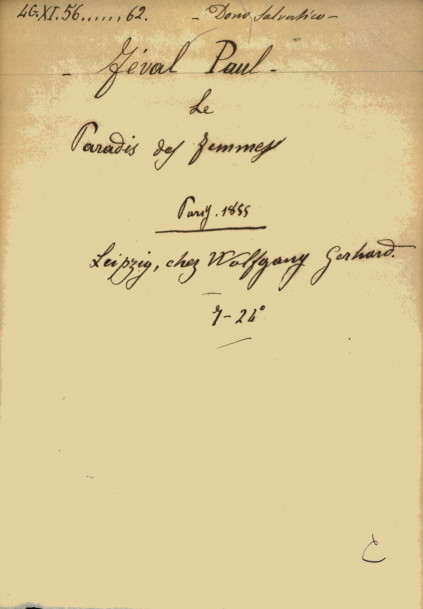 4G.XI.56......62. - Dono Salvatico -
- Féval Paul -
Le
Paradis des Femmes
Paris. 1855
Leipzig, chez Wolfgang Gerhard.
7-24°
C